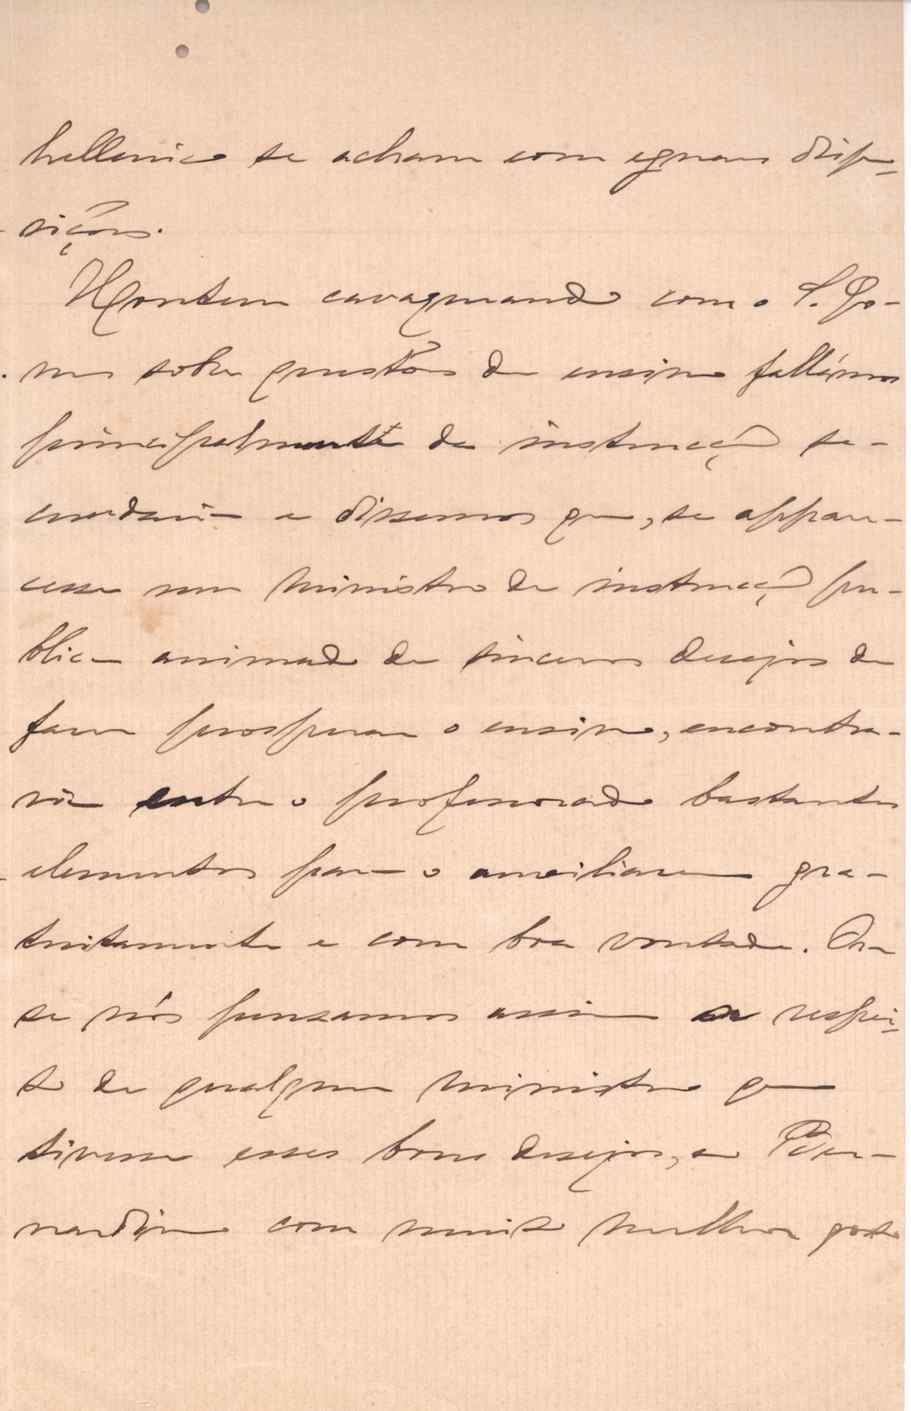 hellenico se acham com eguaes dispo-
sições.
Hontem cavaqueando com o S. Go-
mes sobre questões de ensino fallámos
principalmente de instrucção se-
cundaria e dissemos que, se appare-
cesse um ministro de instrucção pu-
blica animado de sinceros desejos de
fazer prosperar o ensino, encontra-
ria entre o professorado bastantes
elementos para o auxiliarem gra-
tuitamente e com boa vontade. Ora
se nós pensamos assim a respei-
to de qualquer ministro que
tivesse esses bons desejos, ao Ber-
nardino com muito melhor gosto